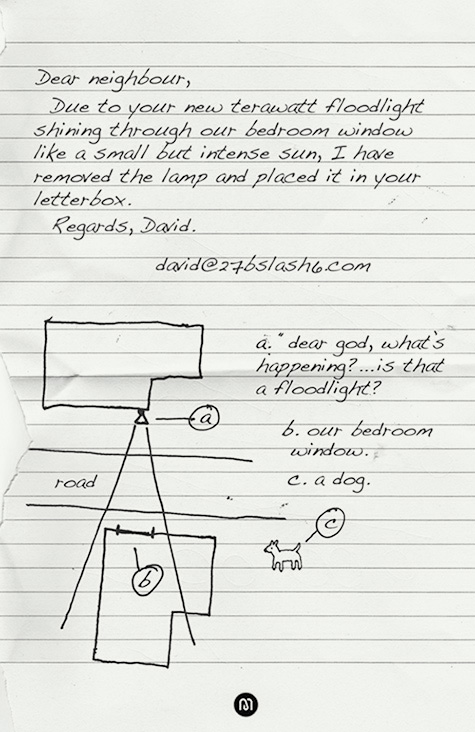 Dear neighbour,
Due to your new terawatt floodlight
shining through our bedroom window
like a small but intense sun, I have
removed the lamp and placed it in your
letterbox.
Regards, David.
david@27bslash6.com
a. " dear god, what's
happening?...is that
a floodlight?
b. our bedroom
window.
c. a dog.
a
road
c
b